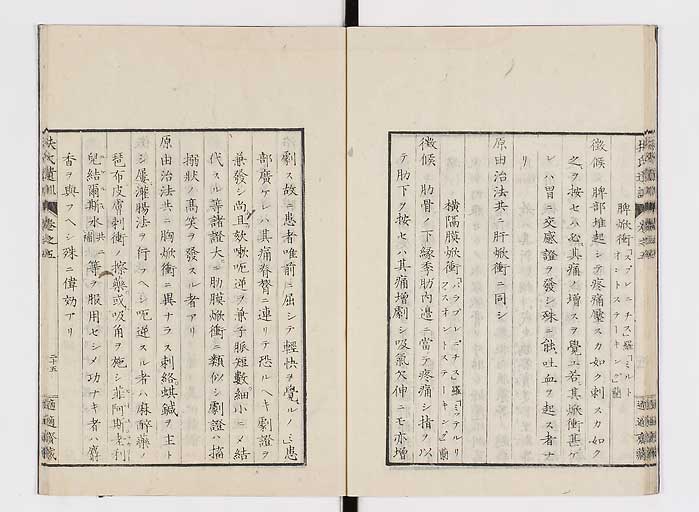 脾焮衝「スプレニチス」羅「ミルト
オントステーキング」蘭
徴候 脾部堆起シテ疼痛壓スカ如ク刺スカ如ク
之ヲ按セハ必其痛ノ增スヲ覺ユ若其焮衝甚ケ
レハ胃ニ交感證ヲ發シ殊ニ蝕吐血ヲ起ス者ナ
リ
原由治法共ニ肝焮衝ニ同シ
横隔膜焮衝「パラプレニチス」羅「ミッテルリ
フスオントステーキング」蘭
徴候 肋骨ノ下緣季肋内邊ニ當テ疼痛シ指ヲ以
テ肋下ヲ按セハ其痛增劇シ吸氣欠伸ニモ亦增
劇ス故ニ患者唯前ニ屈シテ輕快ヲ覺ルノミ患
部廣ケレハ其痛脊膂ニ連リテ恐ルヘキ劇證ヲ
兼發シ尚且欬嗽呃逆ヲ兼子脈短數細小ニメ結
代スル等諸證大ニ肋膜焮衝ニ類似シ劇證ハ搐
搦狀ノ高笑ヲ發スル者アリ
原由治法共ニ胸焮衝ニ異ナラス刺絡蜞鍼ヲ主ト
シ屢灌腸法ヲ行フヘシ呃逆スル者ハ麻醉藥ノ
琶布皮膚刺衝ノ擦藥或吸角ヲ施シ菲阿斯
兒結爾斯水 等ヲ服用セシメ功ナキ者ハ麝
香ヲ與フヘシ殊ニ偉効アリ
扶氏遺訓 卷之五
二十五
適適齋藏
扶氏遺訓 卷之五
適適齋藏